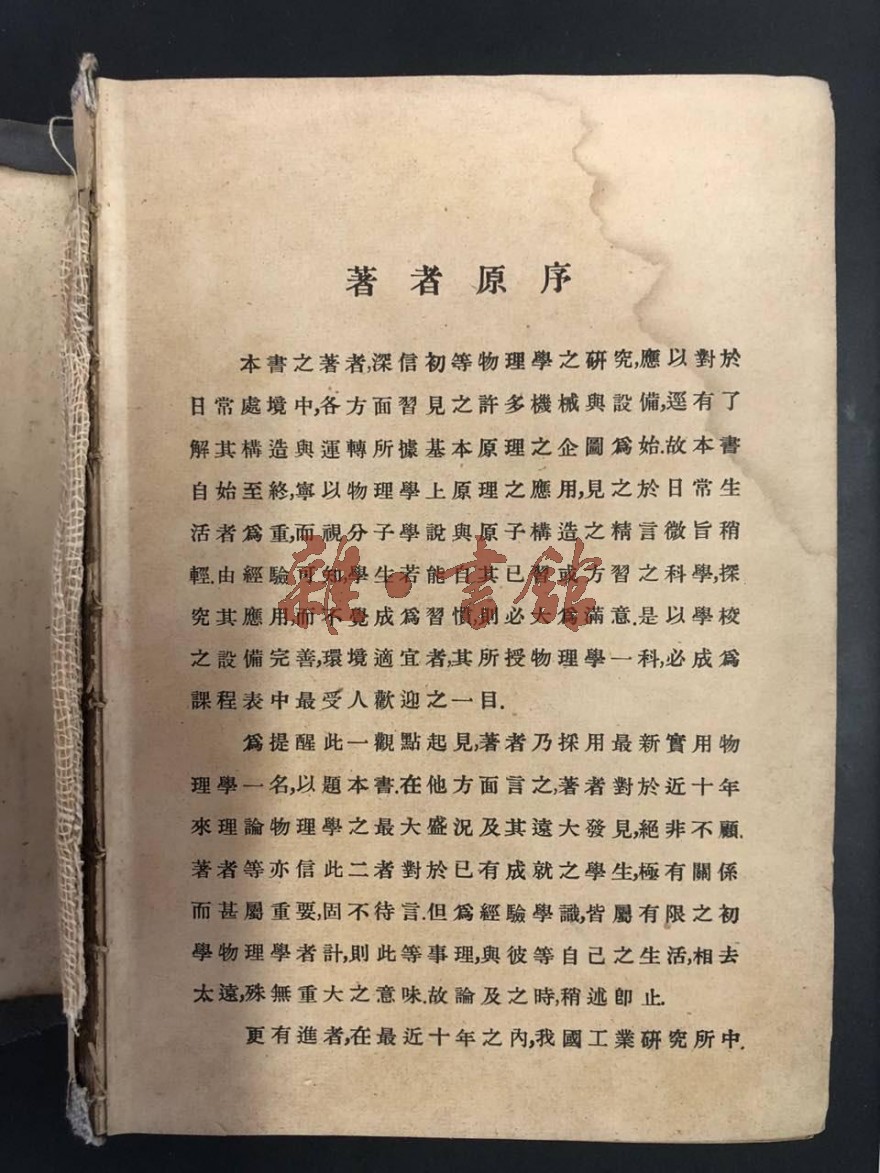 著者原序
本書之著者,深信初等物理學之研究,應以對於
日常處境中,各方面習見之許多機械與設備,逕有了
解其構造與運轉所據基本原理之企圖爲始.故本書
自始至終,寧以物理學上原理之應用,見之於日常生
活者爲重,而視分子學說與原子構造之精言微旨稍
輕.由經驗可知,學生若能自其已習或方習之科學,探
究其應用,而不覺成爲習慣,則必大爲滿意.是以學校
之設備完善,環境適宜者,其所授物理學一科,必成爲
課程表中最受人歡迎之一目.
爲提醒此一觀點起見,著者乃採用最新實用物
理學一名,以題本書.在他方面言之,著者對於近十年
來理論物理學之最大盛況及其遠大發見,絕非不顧.
著者等亦信此二者對於已有成就之學生,極有關係
而甚屬重要,固不待言.但爲經驗學識,皆屬有限之初
學物理學者計,則此等事理,與彼等自己之生活,相去
太遠,殊無重大之意味.故論及之時,稍述卽止.
更有進者,在最近十年之內,我國工業研究所中.
雜·書館